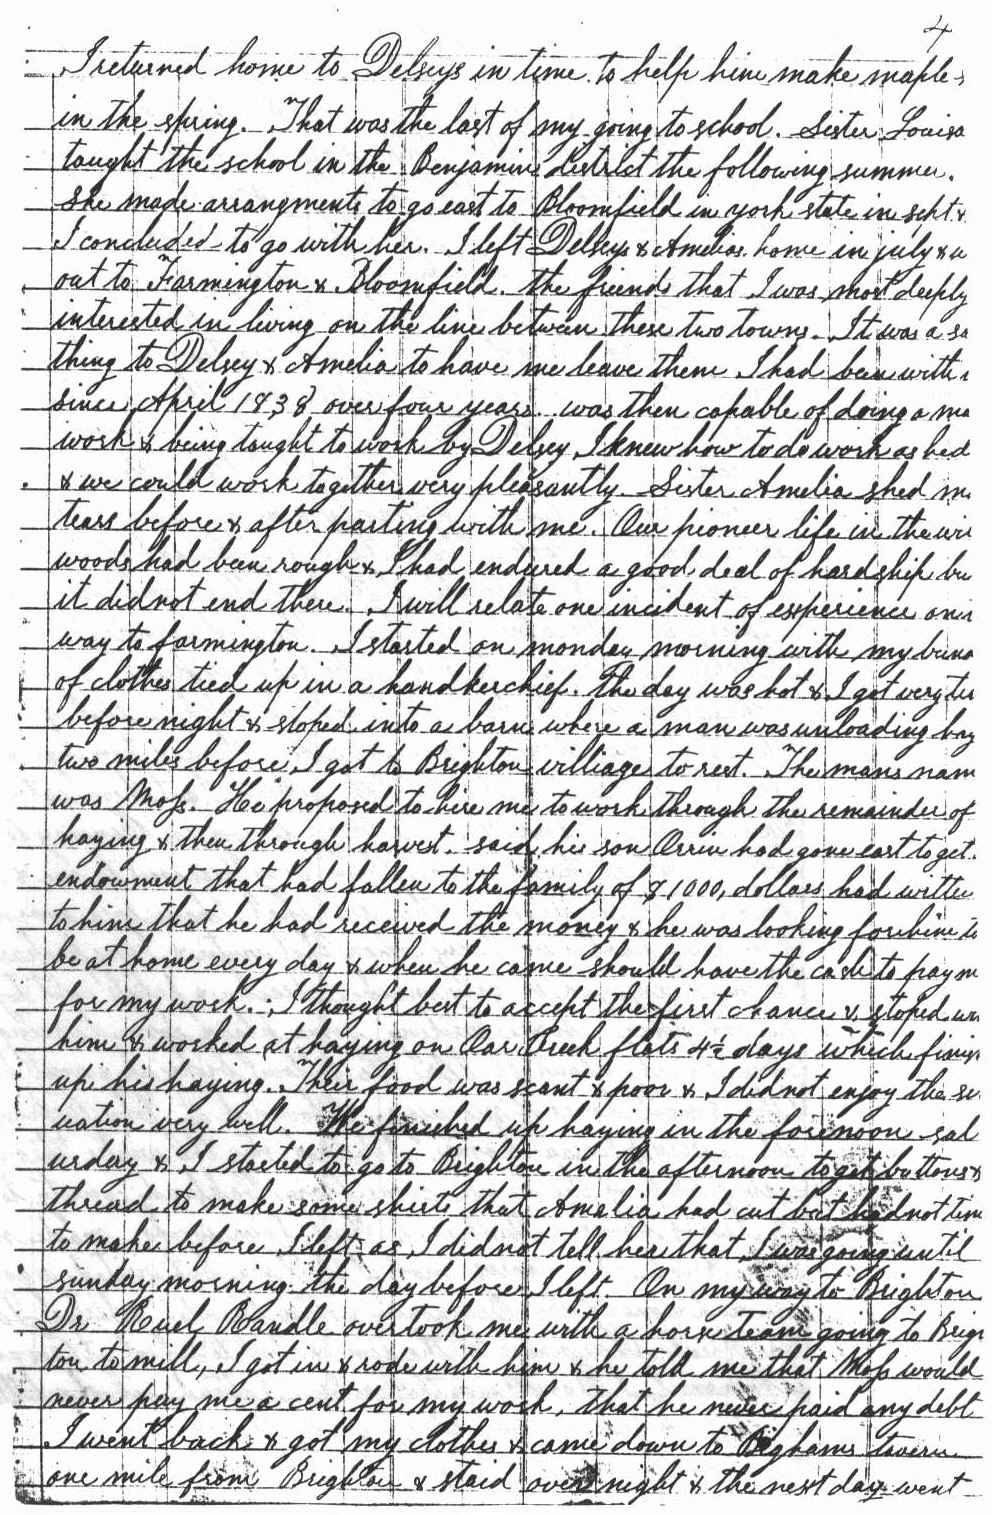 4
I returned home to Delseys in time to help him make maple
in the spring. That was the last of my going to school. Sister Louisa
taught the school in the Benjamin district the following summer.
She made arrangments to go east to Bloomfield in york state in sept &
I concluded to go with her. I left Delseys & Amelias home in july & w
out to Farmington & Bloomfield. the friends that I was most deeply
interested in living on the line between these two towns. It was a sa
thing to Delsey & Amelia to have me leave them I had been with
since April 1838 over four years. was then capable of doing a ma
work & being taught to work by Delsey I knew how to do work as he d
& we could work together very pleasantly. Sister Amelia shed m
tears before & after parting with me. Our pioneer life in the wi
woods had been rough & I had endured a good deal of hardship bu
it did not end there. I will relate one incident of experience on
way to farmington. I started on monday morning with my bund
of clothes tied up in a handkerchief. The day was hot & I got very tir
before night & stoped into a barn where a man was unloading hay
two miles before I got to Brighton villiage to rest. The mans nam
was Moss. He proposed to hire me to work through the remainder of
haying & then through harvest. said his son Orrin had gone east to get
endowment that had fallen to the family of $1000, dollars had witten
to him that he had received the money & he was looking for him to
be at home every day & when he came should have the cash to pay m
for my work. I thought best to accept the first chance & stoped w
him & worked at haying on Oar Creek flats 4½ days which finis
up his haying. Their food was scant & poor & I did not enjoy the si
uation very well. We finished up haying in the forenoon sat
urday & I started to go to Brighton in the afternoon to get buttons &
thread to make some shirts that Amelia had cut but had not tim
to make before I left as I did not tell her that I was going until
sunday morning the day before I left. On my way to Brighton
Dr Ruel Randle overtook me with a horse team going to Brigh
ton to mill, I got in & rode with him & he told me that Moss would
never pay me a cent for my work, that he never paid any debt
I went back & got my clothes & came down to Bighams tavern
one mile from Brighton & staid over night & the next day went